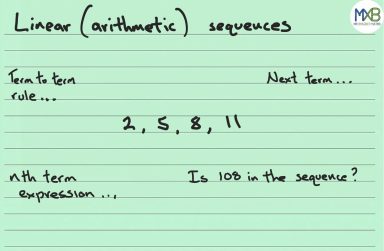 Linear (arithmetic) sequences
MXB
Term to term
rule...
Next term...
2, 5, 8, 11
nth term
expression...
Is 108 in the sequence?